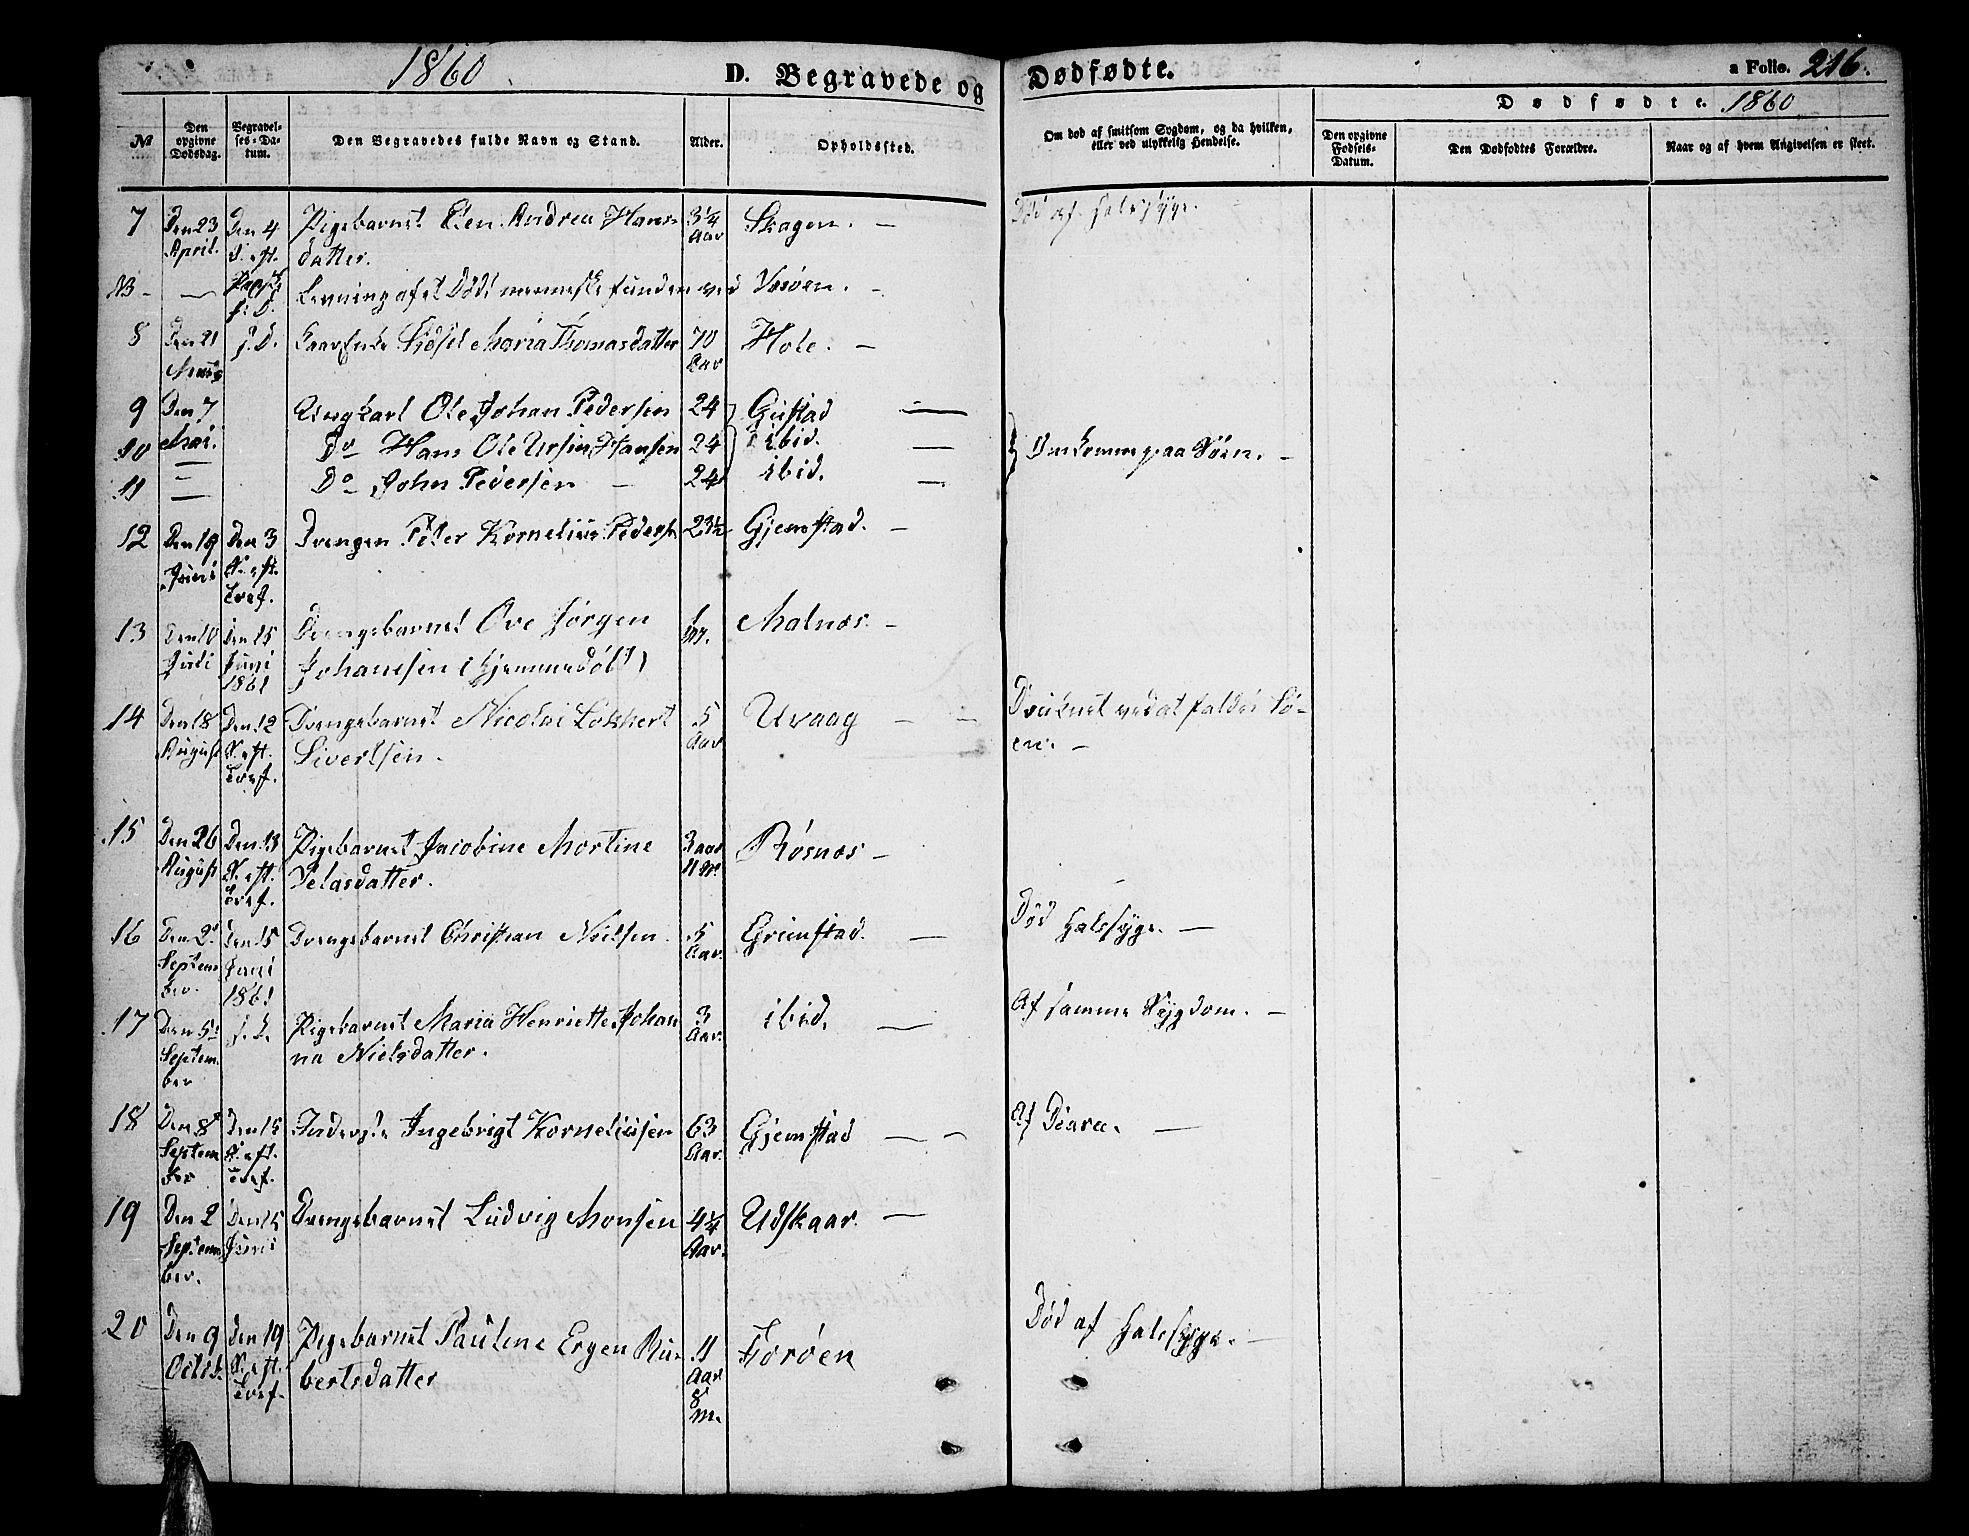 1860
D. Begravede og Dødfødte.
a Folio. 216.
Dødfødte. 1860
No
Den opgivne Dødsdag.
Begravelses-Datum.
Den Begravedes fulde Navn og Stand.
Alder.
Opholdssted.
Om død af smitsom Sygdom, og da hvilken, eller ved ulykkelig Hendelse.
Den opgivne Fødsels-Datum.
Den Dødfødtes Forældre.
Naar og af hvem Angivelsen er skeet.
7 Den 23 Den 4 Pigebarnet Elen Andrea Hans- 3¼ Skagen. — Død af Halssyge.
April. datter. Aar
NB — Levning af et Dødt menneske funden ved —
8 Den 21 Sidsel Maria Thomasdatter 70 Hole. —
Aar
9 Den 7 Ungkarl Ole Johan Pedersen 24 Gustad —
10 Mai. Do Hans Ole Ursin Hansen 24 ibid. — Omkomne paa Søen. —
11 — Do John Pedersen — 24 ibid. —
12 Den 19 Den 3 Drengen Peter Kornelius Peders. 23½ Gjemstad. —
Juni S. eft. Tref.
13 Den 10 Den 15 Drengebarnet Ove Jørgen Malnæs. —
Juli Juni 1861 Johansen (hjemmedøbt)
14 Den 18 Den 12 Drengebarnet Nicolai Lokkert 5 Uvaag — Druknet ved at falde i Sø-
August S. eft. Tref. Sivertsen. Aar en. —
15 Den 26 Den 13 Pigebarnet Jacobine Mortine 3 aar Røsnæs —
August S. eft. Tref. Pelasdatter. 11 m.
16 Den 2 Den 15 Drengebarnet Christian Nielsen. 5 Grimstad. — Død Halssyge. —
September. Juni 1861 Aar.
17 Den 5 Pigebarnet Maria Henriette Johan 3 ibid. — Af samme Sygdom. —
September na Nielsdatter. Aar.
18 Den 8 Den 15 Inderste Ingebrigt Korneliussen 63 Gjemstad — Af Diarea. —
September S. eft. Tref. Aar.
19 Den 2 Den 15 Drengebarnet Ludvig Monsen 4¼ Udskaar. —
September. Juni Aar.
20 Den 9 Den 19 Pigebarnet Pauline Ergen Ru- 11 Forøen Død af Halssyge. —
Octob. S. eft. Tref. bertsdatter Aar 8 m.